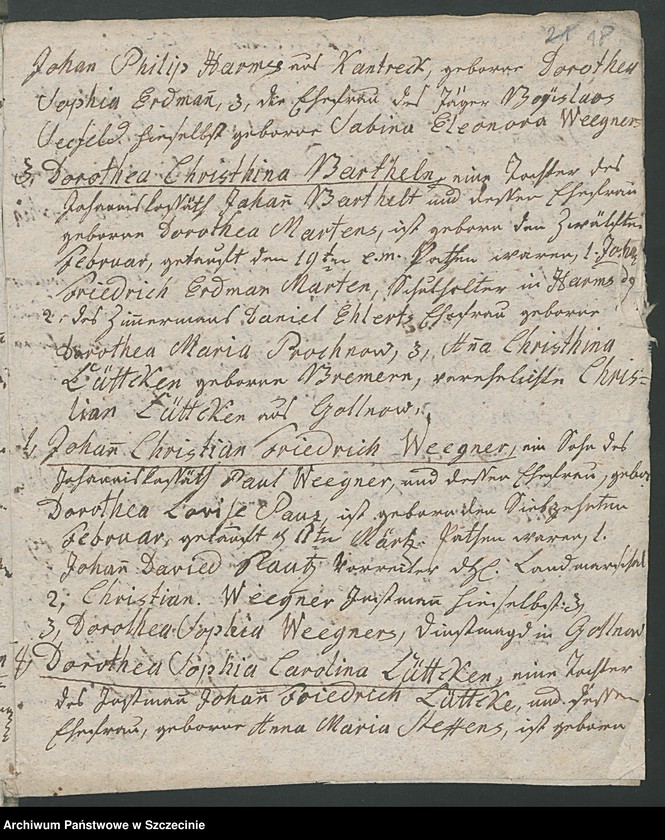 28 18
Johan Philip Harms aus Kantreck, geborne Dorothea
Sophia Erdman̅, 3, die Ehefrau des Jäger Bogislavs
Seefeld hieselbst geborne Sabina Eleonora Weegner
3, Dorothea Christhina Bartheln, eine Tochter des
Johan̅ Barthelt und dessen Ehefrau
geborne Dorothea Martens, ist geborn den Zwölften
Februar, getauft den 19ten e.m. Pathen waren, 1. Joh
Friedrich Erdman Marten, Schulhalter in Harmsdg
2, des Zimmermans Daniel Ehlerts Ehefrau geborne
Dorothea Maria Prochnow, 3, An̅a Christhina
Lüttcken geborne Bremern, verehelichte Chris=
tian Lüttcken aus Gollnow.
Johan̅ Christian Friedrich Weegner, ein Sohn des
Paul Weegner, und dessen Ehefrau, gebor
Dorothea Lovise Pauz, ist geboren den Siebzehnten
Februar, getauft d 11ten Märtz. Pathen waren, 1.
Johan David Plautz Vorreiter Landmarschal
2, Christian. Weegner hieselbst. 3,
3, Dorothea Sophia Weegners, Dinstmagd in Gollnow
Dorothea Sophia Carolina Lüttcken, eine Tochter
des Johan̅ Friedrich Lüttcke, und dessen
Ehefrau, geborne Anna Maria Steffens, ist geborn
Archiwum Państwowe w Szczecinie